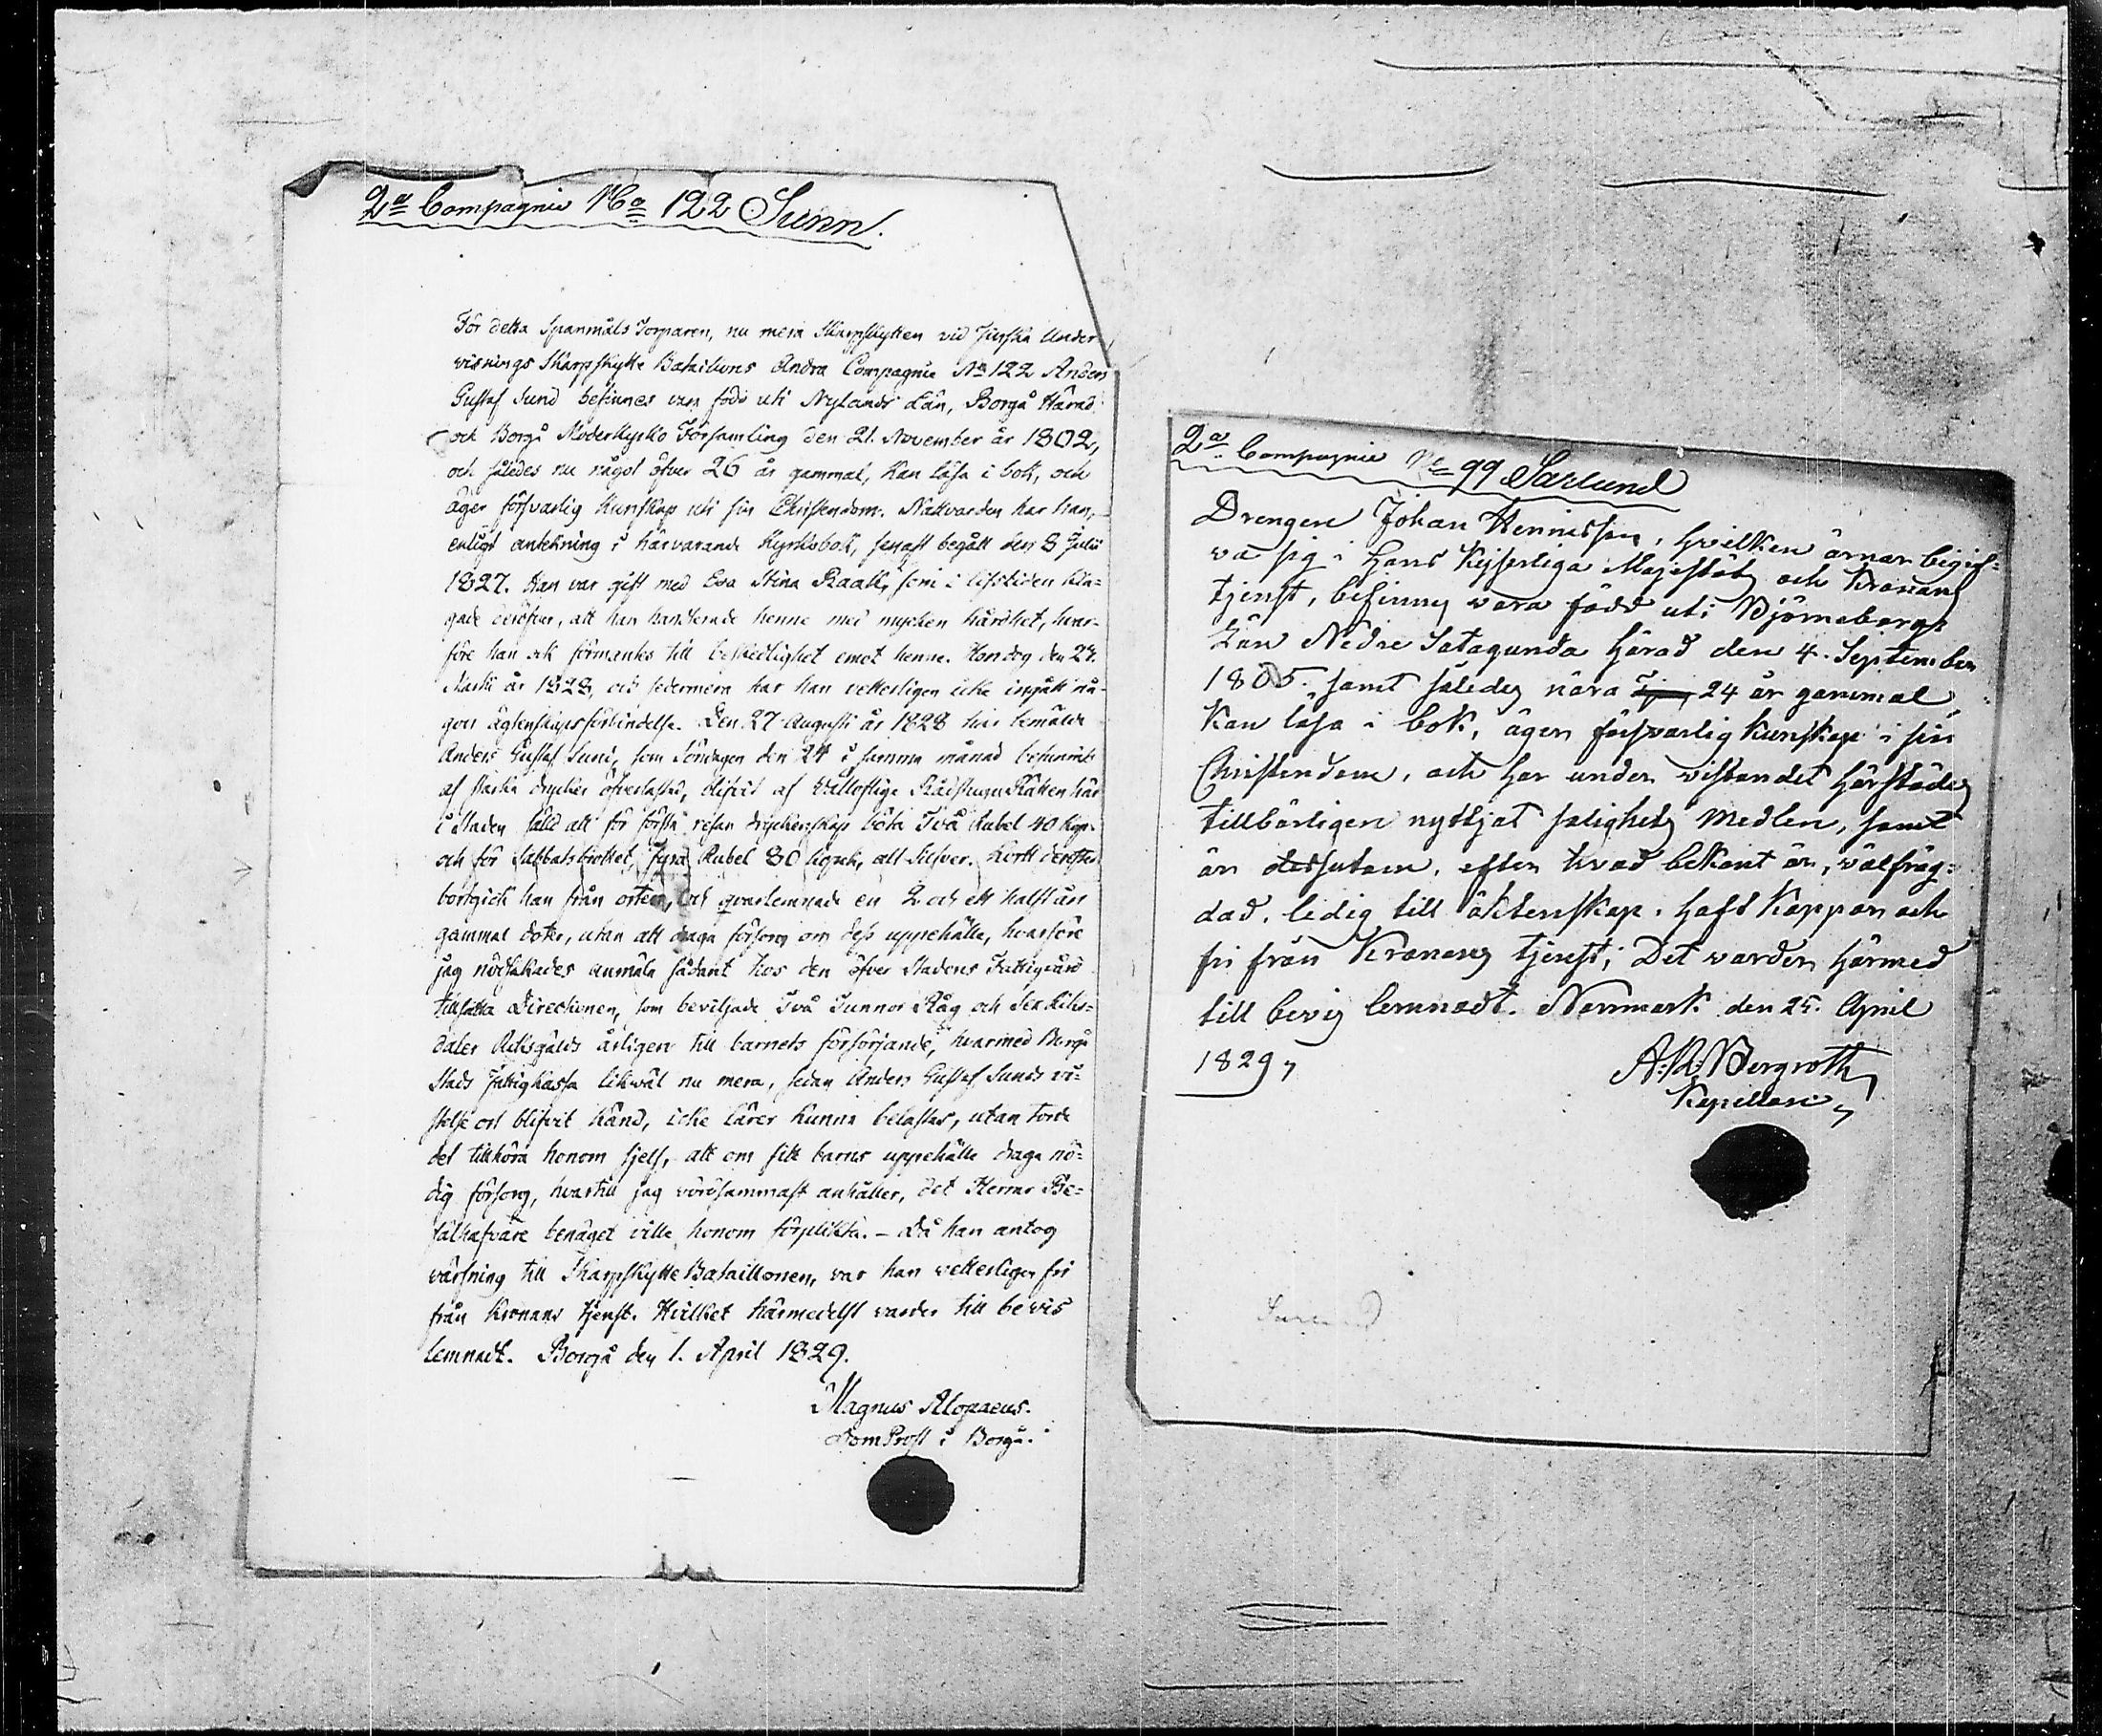 2a Compagnie No 122 Sunn.
För detta Spanmåls Torparen, nu mera Skarpskytten vid Finska Under
visnings Skarpskytte Batailions Andra Compagnie No 122 Anders
Gustaf Sund befinnes vara född uti Nylands Län, Borgå Härad
och Borgå Moderkyrko Församling den 21. November år 1802,
och således nu något öfver 26 år gammal, kan läsa i bok, och
äger försvarlig kunskap uti sin Christendom. Nattvarden har han,
enligt antekning i härvarande Kyrkobok, senast begått den 8 Julii
1827. Han var gift med Eva Stina Raatk, som i lifstiden kla-
gade deröfver, att han handterade henne med mycken hårdhet, hvar-
före han ock förmantes till beskedlighet emot henne. Hon dog den 27.
Martii år 1828, och sedermera har han vetterligen icke ingått nå-
gon ägtenskapsförbindelse. Den 27 Augusti år 1828 har bemälde
Anders Gustaf Sund, som Söndagen den 24 i samma månad befunnits
af starka drycker öfverlastad, blifvit af Vällofliga RådstuguRätten här
i staden fälld att för första resan dryckenskap böta Två Rubel 40 Kop.
och för Sabbatsbrottet Fyra Rubel 80 Kopek, allt Silfver. Kort derefter
bortgick han från orten, och qvarlemnade en 2 och ett halft års
gammal doter, utan att draga försorg om dess uppehälle, hvarföre
jag nödsakades anmäla sådant hos den öfver Stadens Fattigvård
tillsatta Directionen, som beviljade Två Tunnor Råg och Sex Riks-
daler Riksgälds årligen till barnets försörjande, hvarmed Borgå
Stads Fattigkassa likväl nu mera, sedan Anders Gustaf Sunds vi-
stelse ort blifvit känd, icke lärer kunna belastas, utan torde
det tillhöra honom sjelf, att om sitt barns uppehälle draga nö-
dig försorg, hvartill jag vördsammast anhåller, det Herrar Be-
fälhafvare benäget ville honom förplikta. - Då han antog
värfning till SkarpskytteBataillonen, var han vetterligen fri
från Kronans tjenst. Hvilket härmedelst varder till bevis
lemnadt. Borgå den 1. April 1829.
Magnus Alopaeus.
DomProst i Borgå.
2a Compagnie No 99 Sarlund
Drengen Johan Henrissen, hvilken ärnar begif-
va sig i Hans Kejserliga Majestäts och Kronans
tjenst, befinnes vara född uti Björneborgs
Län Nedre Satagunda Härad den 4. September
1805. samt således nära 24 år gammal,
kan läsa i bok, äger försvarlig kunskap i sin
Christendom, och har under vistandet härstädes
tillbörligen nyttjat salighets medlen, samt
är dessutom, efter hvad bekant är, välfräg-
dad, ledig till äktenskap, haft koppor och
fri från Kronans tjenst; Det varder härmed
till bevis lemnadt. Norrmark den 25. April
1829,
A. W. Bergroth
Kapellan